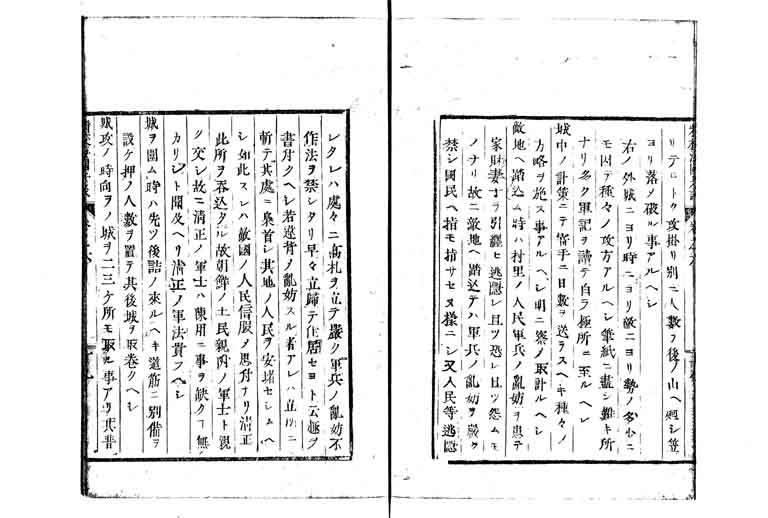 リテヒトク攻掛リ別ニ人數ヲ後ノ山ヘ廻シ笠
ヨリ落メ破ル事アルヘシ
右ノ外城ニヨリ時ニヨリ敵ニヨリ勢ノ多少ニ
モ因テ種々ノ攻方アルヘシ筆紙ニ盡シ難キ所
ナリ多ク軍記ヲ讀テ自ラ極所ニ至ルヘシ
城中ノ計策ニテ寄手ニ日數ヲ送ラスヘキ種々ノ
方略ヲ施ス事アルヘシ明ニ察メ取計ルヘシ
敵地ヘ踏込ム時ハ村里ノ人民軍兵ノ亂妨ヲ患テ
家財妻子ヲ引纒ヒ逃隱レ且ツ恐レ且ツ怨ムモ
ノナリ故ニ敵地ヘ踏込テハ軍兵ノ亂妨ヲ嚴ク
禁シ國民ヘ指モ指サセヌ樣ニシ又人民等逃隱
レタレハ處々ニ高札ヲ立テ嚴ク軍兵ノ亂妨不
作法ヲ禁シタリ早々立歸テ住居セヨト云趣ヲ
書付クヘシ若違背ノ亂妨スル者アレハ立ﾄｺﾛニ
斬テ其處ニ梟首シ其地ノ人民ヲ安堵セシムヘ
シ如此スレハ敵國ノ人民信服メ思付ナリ清正
此所ヲ吞込タル故朝鮮ノ土民親ﾐﾉ軍士ト親
ク交シ故ニ清正ノ軍士ハ陳用ニ事ヲ缺クﾆ無
カリシト聞及ヘリ清正ノ軍法貴フヘシ
城ヲ圍ム時ハ先ツ後詰ノ來ルヘキ道筋ニ別備ヲ
設ケ押ノ人數ヲ置テ其後城ヲ取卷クヘシ
城攻ノ時向ヲノ城ヲ二三ケ所モ取ル事アリ兵書